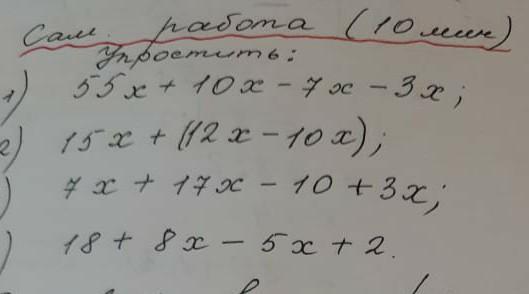 Сам. работа (10 мин)
Упростить:
1) 55x + 10x - 7x - 3x;
2) 15x + (12x - 10x);
) 7x + 17x - 10 + 3x;
) 18 + 8x - 5x + 2.